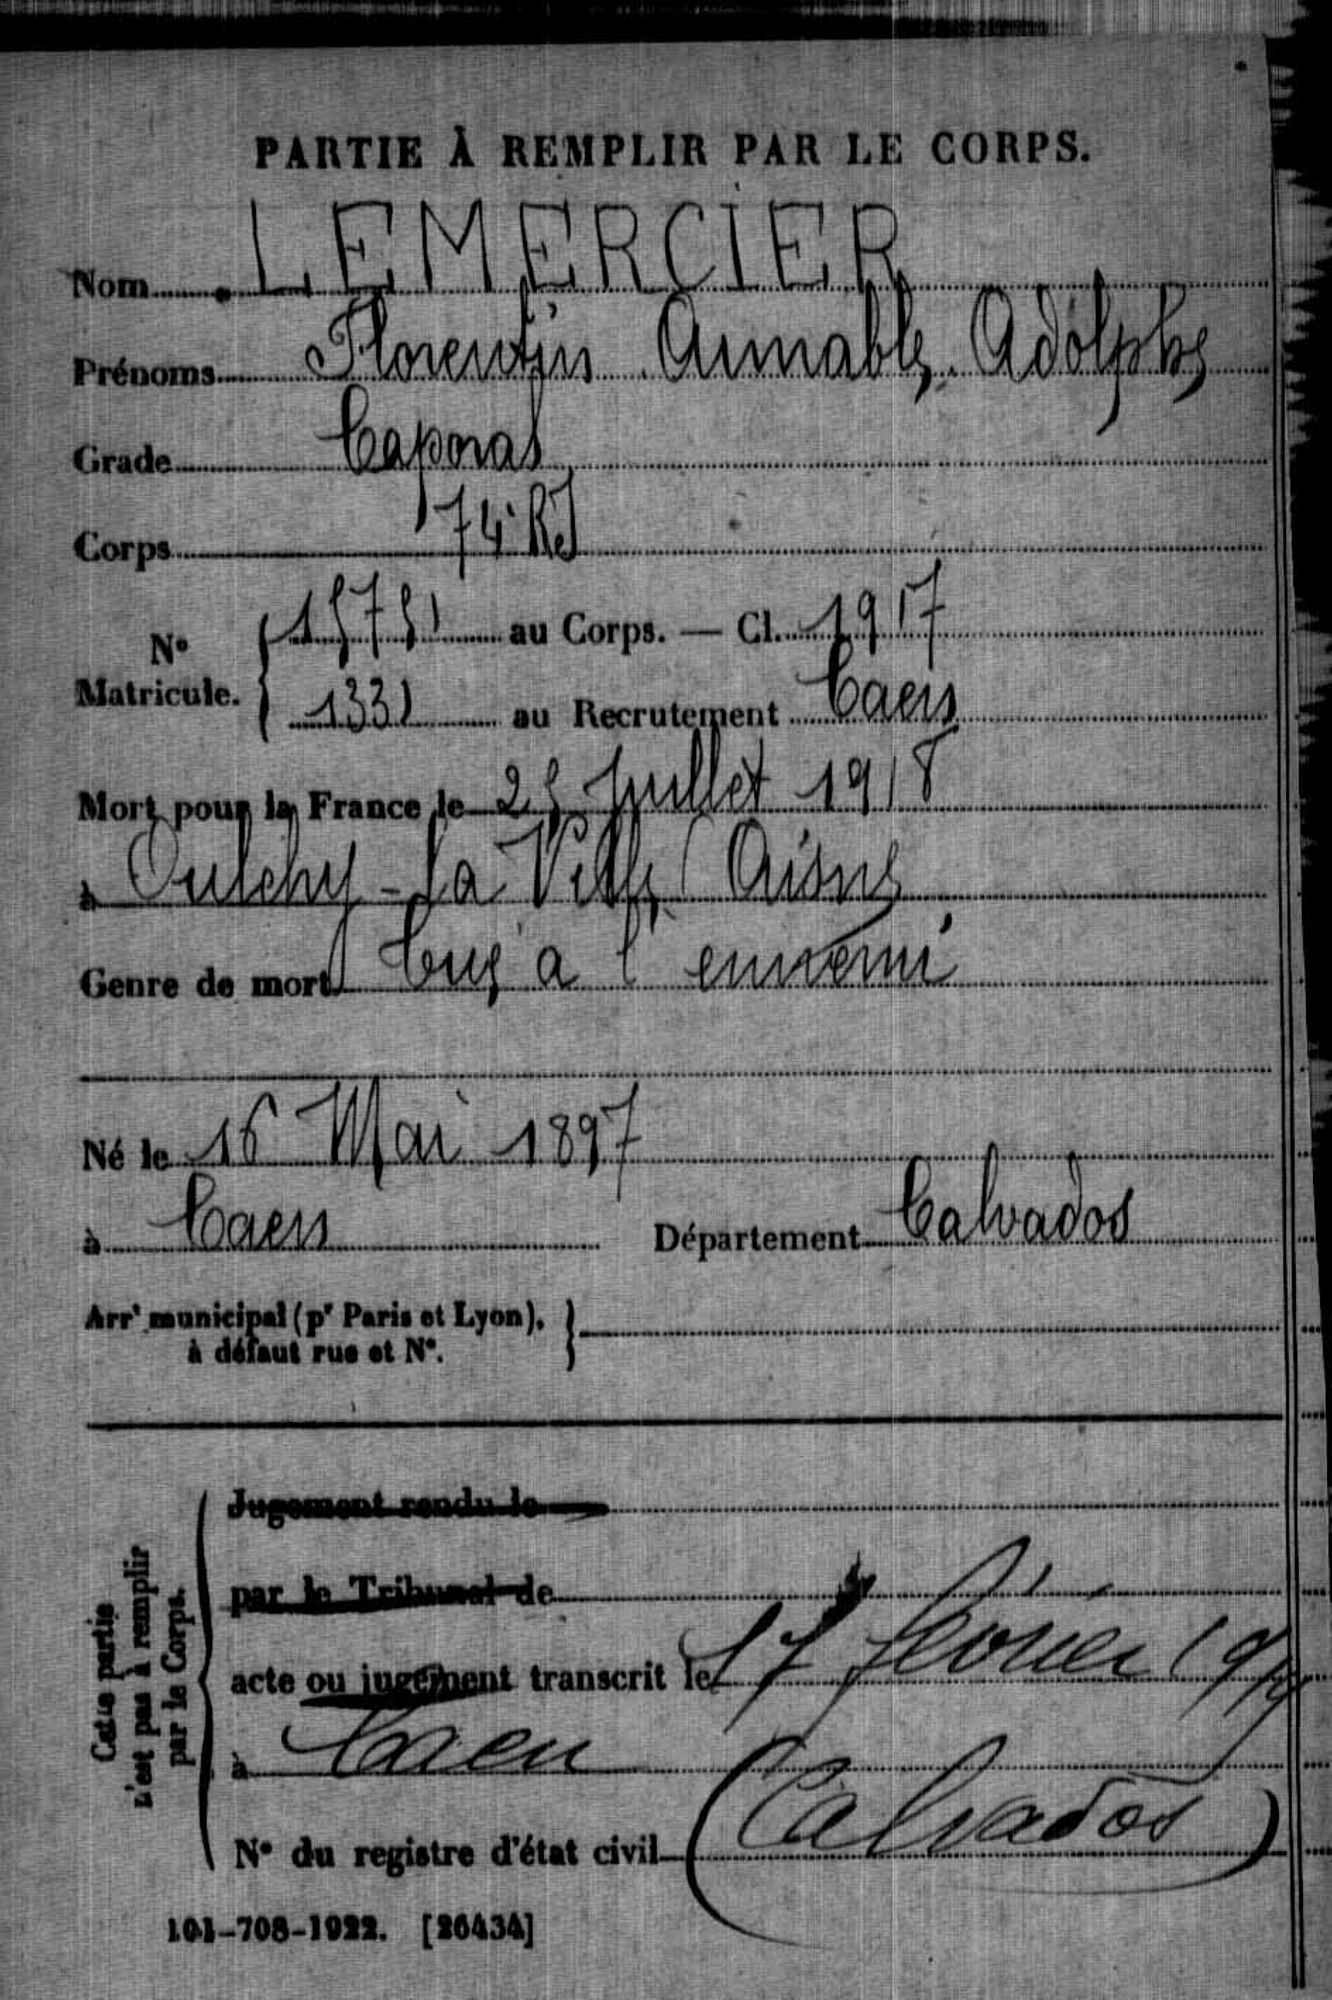 PARTIE À REMPLIR PAR LE CORPS.
Nom LEMERCIER
Prénoms Florentin Aimable Adolphe
Grade Caporal
Corps 74 RI
N° Matricule. 15751 au Corps. — Cl. 1917
1331 au Recrutement Caen
Mort pour la France le 25 Juillet 1918
à Oulchy-La Ville (Aisne
Genre de mort Tué à l'ennemi
Né le 16 Mai 1897
à Caen Département Calvados
Arrt municipal (pr Paris et Lyon),
à défaut rue et N°.
Cette partie
n'est pas à remplir
par le Corps.
Jugement rendu le
par le Tribunal de
acte ou jugement transcrit le 17 février 1919
à Caen
(Calvados)
N° du registre d'état civil
101-708-1922. [26434]